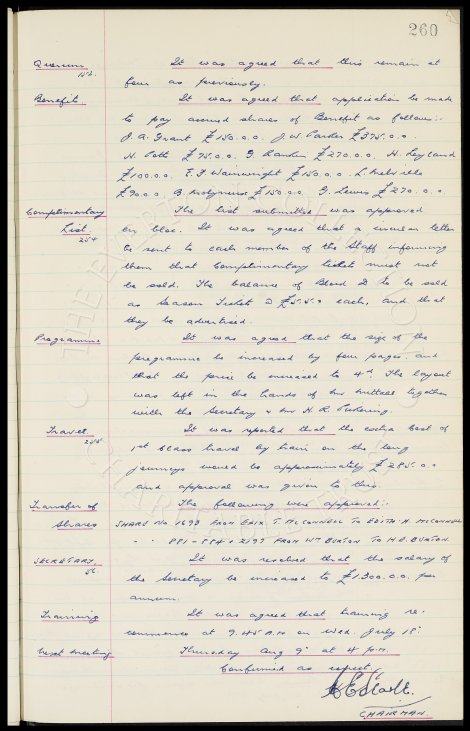 260
Quorum It was agreed that this remain at
four as previously.
Benefit. It was agreed that application be made
to pay accrued shares of Benefit as follows:-
J. A. Grant £150.0.0. J. W. Parker £375.0.0.
H. Potts £75.0.0. G. Rankin £270.0.0. H. Leyland
£100.0.0. E. F. Wainwright £150.0.0. L. Melville
£90.0.0. B. Molyneux £150.0.0. G. Lewis £270.0.0
Complimentary The list submitted was approved
List. en bloc. It was agreed that a circular letter
254 be sent to each member of the Staff informing
them that Complimentary tickets must not
be sold. The balance of Block D to be sold
as Season Tickets @ £5.5.0 each, and that
they be advertised.
Programme It was agreed that the size of the
programme be increased by four pages and
that the price be increased to 4d. The layout
was left in the hands of Mr Nuttall together
with the Secretary & Mr H. R. Pickering.
Travel. It was reported that the extra cost of
1st Class travel by train on the long
journeys would be approximately £285.0.0
and approval was given to this.
Transfer of The following were approved:-
Shares SHARE No 1693 FROM ERIX. T. MCCONNELL TO EDITH. H. MCCONNELL
" " 881-884 & 2197 FROM WM BURTON TO H. E. BURTON.
SECRETARY. It was resolved that the salary of
the Secretary be increased to £1300.0.0. per
annum.
Training It was agreed that training re-
commence at 9.45 A.M on Wed. July 18
Next meeting Thursday Aug 9 at 4 p.m.
Confirmed as correct.
CHAIRMAN.